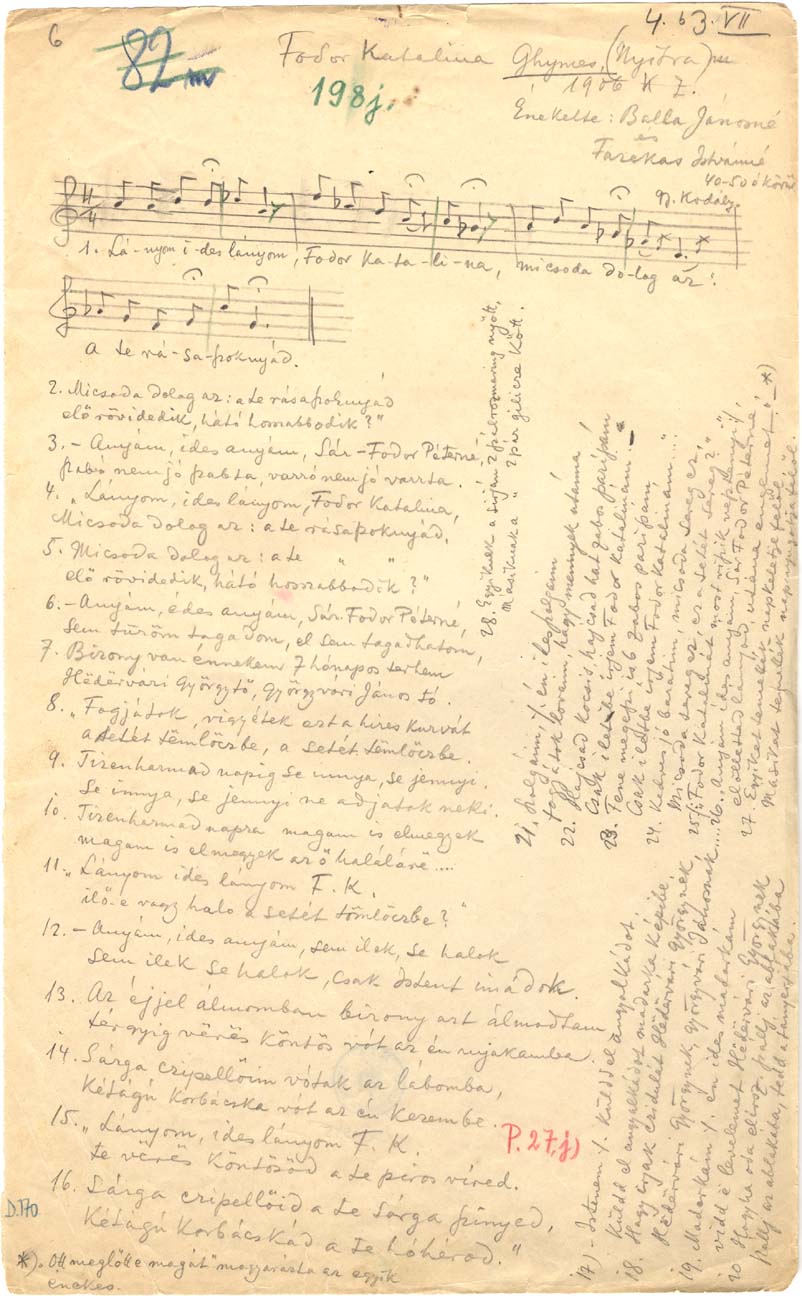 6
82
4. b3. VII
Fodor Katalina Ghymes, (Nyitra)
198j.
1906
Énekelte: Balla Jánosné
és
Fazekas Istvánné
40-50 é körül
Kodály
1. Lá-nyom i-des lányom, Fodor Ka-ta-li-na, micsoda do-log az:
A te rá-sa-poknyád.
2. Micsoda dolog az: a te rásapoknyád
elő rövidedik, hátó hosszabbodik?"
3. – Anyám, ides anyám, Sár-Fodor Péterné
szabó nem jó szabta, varró nem jó varrta.
4. „Lányom, ides lányom, Fodor Katalina,
Micsoda dolog az: a te rásapoknyád.
5. Micsoda dolog az: a te " "
elő rövidedik, hátó hosszabbodik?"
6. – Anyám, édes anyám, Sár-Fodor Péterné,
Sem türöm tagadom, el sem tagadhatom,
7. Bizony van énnekem 7 hónapos terhem
Hédërvári Györgytő, Györgyvári János tó.
8. „Fogjátok, vigyétek ezt a hires kurvát
a setét tömlöczbe, a setét tömlöczbe.
9. Tizenharmad napig se innya, se jennyi,
Se innya, se jennyi ne adjatok neki.
10. Tizenharmad napra magam is elmegyek
magam is elmegyek az ő halálárë ....
11. „Lányom ides lányom F. K.
ilő-e vagy haló a setét tömlöczbe?"
12. – Anyám, ides anyám, sem ilek, se halok
sem ilek se halok, csak Istent imádok.
13. Az éjjel álmomban bizony azt álmodtam
térgyig vërës köntös vót az én nyakamba.
14. Sárga czipellőim vótak az lábomba,
Kétágú korbácska vót az én kezembe.
15. „Lányom, ides lányom F. K.
te vërës köntösöd a te piros víred.
16. Sárga czipellőid a te sárga szinyed,
Kétágú korbácskád a te hóhérod."
P. 27,j)
D.170
*). „Ott meglőtte magát" magyarázta az egyik
énekes.
17) – Istenem /. küldd el angyalkádot.
Küldd el angyalkádot madárka képibe.
18. Hagy írjak czidulát Hédërvári Györgynek
Hédërvári Györgynek, Györgyvári Jánosnak ....
19. Madárkám /. én ides madárkám
vidd ë levelemet Hédërvári Györgynek
20 Hogyha oda elírsz, szallj az ablakjába
szallj az ablakába, tedd a tányérjába.
21. Szolgáim, /. én iles szolgáim
fogjátok lovaim, hagy mennyek utánna
22. Hajcsad kocsis, hajcsad hat gabos paripám
csak iletbe írjem Fodor Katalinám. –
23. Tene megszí is 6 zabos paripám
Csak iletbe írjem Fodor Katalinám" ....
24. Kedves jó barátim, micsoda sereg ez,
Micsoda sereg ez, ez a setét sereg?"
25. Fodor Katalinát most viszik
26. „Anyám ides anyám, Sár Fodor Péterné
elölletted lányod, utána engëmet." – *)
27. Egyiket temetik napkeletje felől
Másikat temetik napnyugatja felől.
28. Egyiknek a sirján 2 szál rozmaring nyőtt,
másiknak a " 2 pár gilicze kőtt.